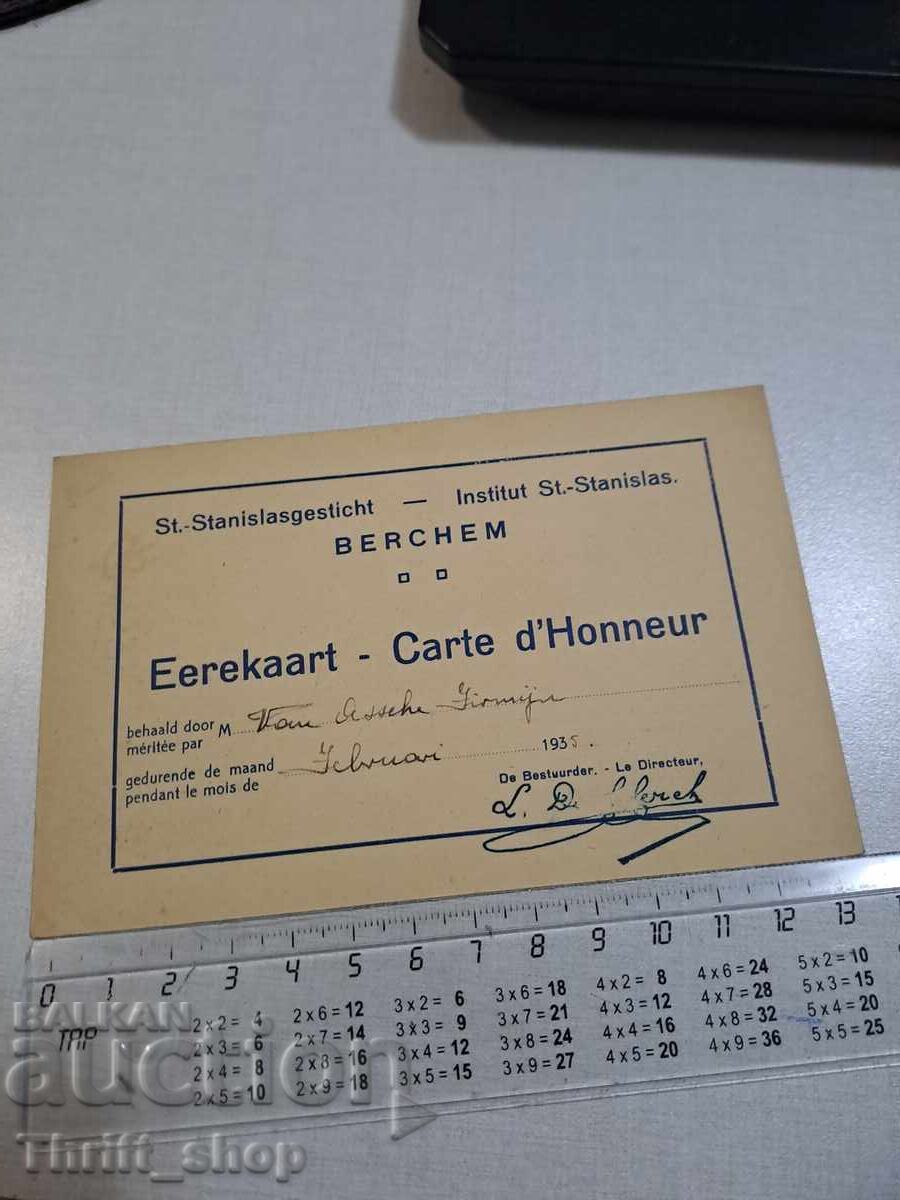 St.-Stanislasgesticht — Institut St.-Stanislas.
BERCHEM
Eerekaart - Carte d'Honneur
behaald door
méritée par M Van Assche Firmijn
gedurende de maand
pendant le mois de Februari 1935.
De Bestuurder. - Le Directeur,
L. De
0 1 2 3 4 5 6 7 8 9 10 11 12 13
2 x 2 = 4 2 x 6 = 12 3 x 2 = 6 3 x 6 = 18 4 x 2 = 8 4 x 6 = 24 5 x 2 = 10
2 x 3 = 6 2 x 7 = 14 3 x 3 = 9 3 x 7 = 21 4 x 3 = 12 4 x 7 = 28 5 x 3 = 15
2 x 4 = 8 2 x 8 = 16 3 x 4 = 12 3 x 8 = 24 4 x 4 = 16 4 x 8 = 32 5 x 4 = 20
2 x 5 = 10 2 x 9 = 18 3 x 5 = 15 3 x 9 = 27 4 x 5 = 20 4 x 9 = 36 5 x 5 = 25
BALKAN
auction
Thrift_shop